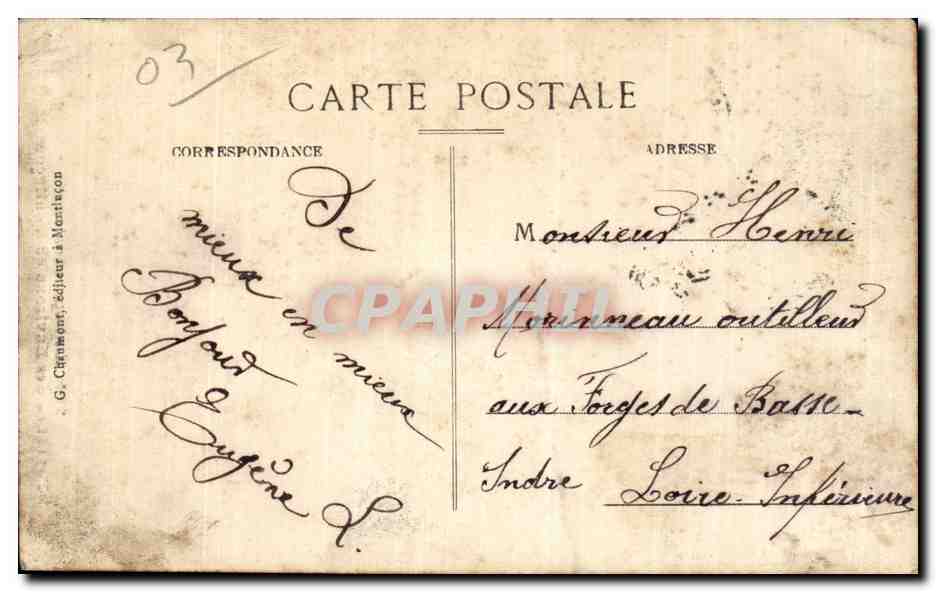 03
CARTE POSTALE
CORRESPONDANCE
ADRESSE
G. Chaumont, édjieur à Montluçon
De
mieux en mieux
Bonjour
Eugène L.
Monsieur Henri
Morinneau outilleur
aux Forges de Basse-
Indre Loire-Inférieure
CPAPHIL